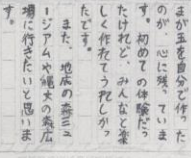 まが玉を自分で作った
のが、心に残っていま
す。初めての体験だっ
たけれど、みんなと楽
しく作れてうれしかっ
たです。
また、地底の森ミュ
ージアムや縄文の森広
場に行きたいと思いま
す。